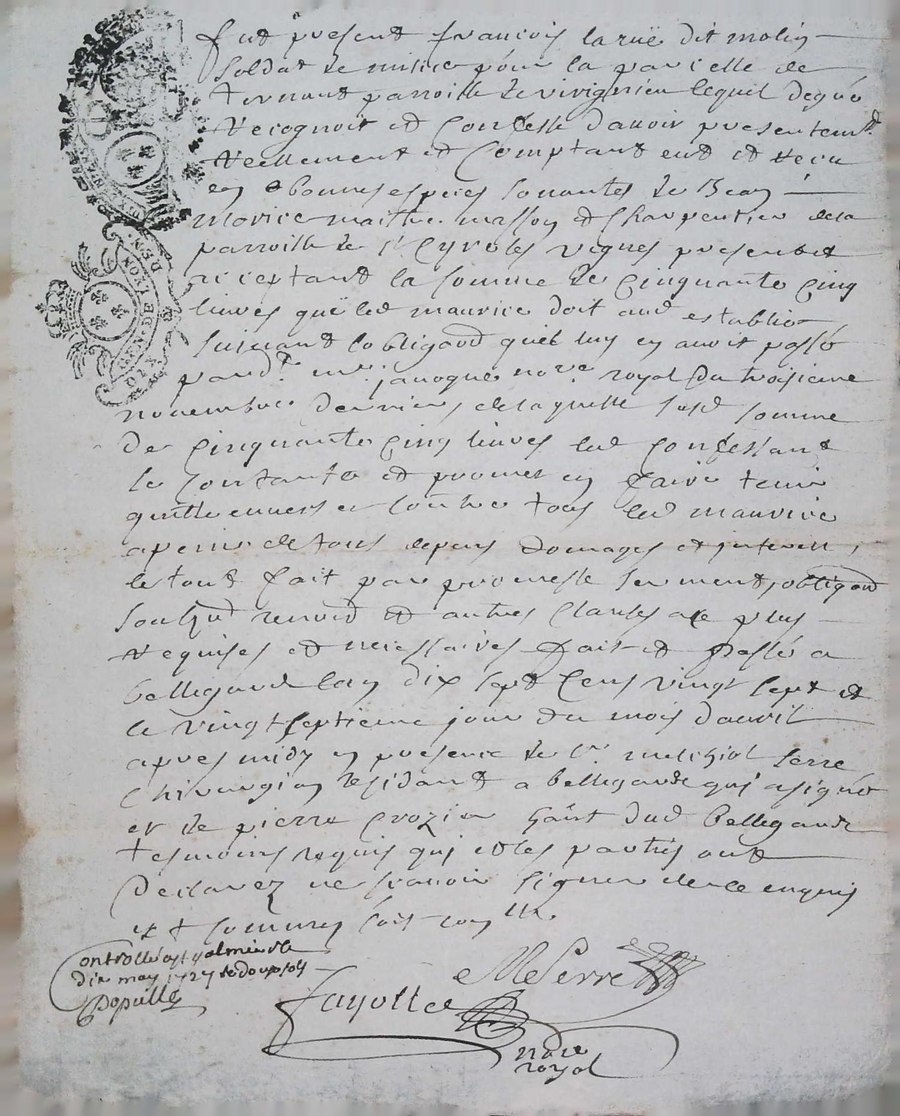 fut present francois la ruë dit molin
soldat de milice pour la parcelle de
ternant parroisse de virignieu lequel de gré
recognoit et confesse d'avoir presentemt
reellement et comptant eut et reçu
en bonnes especes sonantes de Jean
Morice maitre masson et charpentier de la
parroisse de st Cyr les vignes present et
acceptant la somme de cinquante cinq
livres que led maurice doit aud establi
suivant l'obligaōn qu'il luy en avoit passé
pard. me janoque nore royal du troisieme
novembre dernier de laquelle susd somme
de cinquante cinq livres led confessant
se contante et promet en faire tenir
quitte envers et contre tous led maurice
a peine de tous depens domages et interest,
le tout fait par promesse serment, obligaōn
renōn et autres clauses a ce plus
requises et necessaires fait et passé a
bellegarde l'an dix sept cens vingt sept et
le vingt septieme jour du mois d'avril
apres midy en presence de sr. melchiol serre
chirurgien residant a bellegarde qui a signé
et de pierre crozier dud bellegarde
tesmoins requis qui et les parties ont
declarez ne scavoir signer de ce enquis
et sommés
MSerre
Controllé a st galmier le
dix may 1727 Rs douze sols
Fayolle
nore
royal
DE LYON
GENERALITE